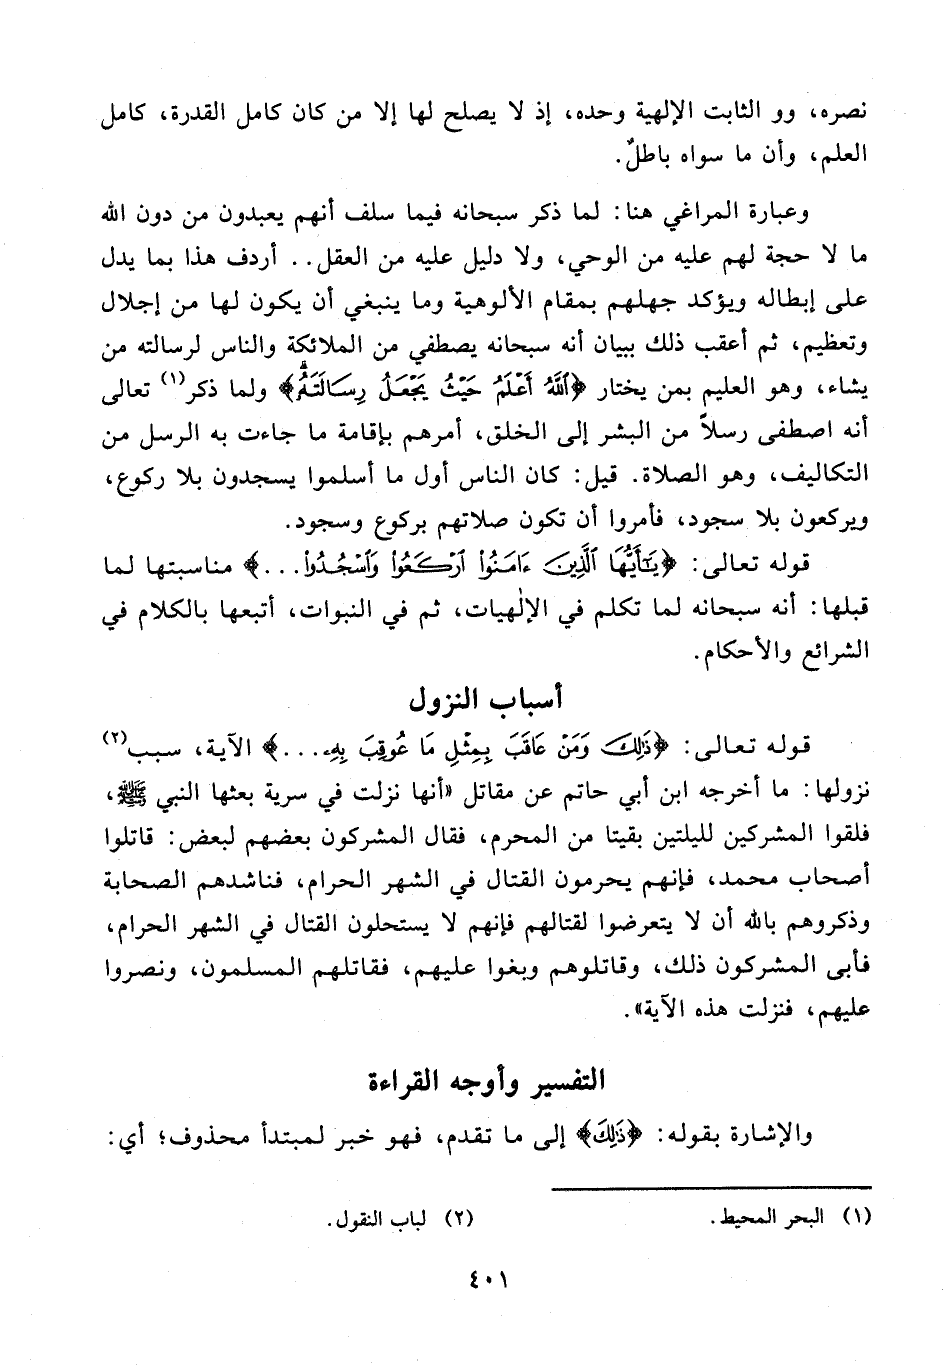 نصره، وو الثابت الإلهية وحده، إذ لا يصلح لها إلا من كان كامل القدرة، كامل
العلم، وأن ما سواه باطلٌ.
وعبارة المراغي هنا: لما ذكر سبحانه فيما سلف أنهم يعبدون من دون الله
ما لا حجة لهم عليه من الوحي، ولا دليل عليه من العقل.. أردف هذا بما يدل
على إبطاله ويؤكد جهلهم بمقام الألوهية وما ينبغي أن يكون لها من إجلال
وتعظيم، ثم أعقب ذلك ببيان أنه سبحانه يصطفي من الملائكة والناس لرسالته من
يشاء، وهو العليم بمن يختار ﴿ٱللَّهُ أَعْلَمُ حَيْثُ يَجْعَلُ رِسَالَتَهُۥ﴾ ولما ذكر(١) تعالى
أنه اصطفى رسلاً من البشر إلى الخلق، أمرهم بإقامة ما جاءت به الرسل من
التكاليف، وهو الصلاة. قيل: كان الناس أول ما أسلموا يسجدون بلا ركوع،
ويركعون بلا سجود، فأمروا أن تكون صلاتهم بركوع وسجود.
قوله تعالى: ﴿يَٰٓأَيُّهَا ٱلَّذِينَ ءَامَنُوا۟ ٱرْكَعُوا۟ وَٱسْجُدُوا۟...﴾ مناسبتها لما
قبلها: أنه سبحانه لما تكلم في الإلٰهيات، ثم في النبوات، أتبعها بالكلام في
الشرائع والأحكام.
أسباب النزول
قوله تعالى: ﴿ذَٰلِكَ وَمَنْ عَاقَبَ بِمِثْلِ مَا عُوقِبَ بِهِۦ...﴾ الآية، سبب(٢)
نزولها: ما أخرجه ابن أبي حاتم عن مقاتل «أنها نزلت في سرية بعثها النبي ﷺ،
فلقوا المشركين لليلتين بقيتا من المحرم، فقال المشركون بعضهم لبعض: قاتلوا
أصحاب محمد، فإنهم يحرمون القتال في الشهر الحرام، فناشدهم الصحابة
وذكروهم بالله أن لا يتعرضوا لقتالهم فإنهم لا يستحلون القتال في الشهر الحرام،
فأبى المشركون ذلك، وقاتلوهم وبغوا عليهم، فقاتلهم المسلمون، ونصروا
عليهم، فنزلت هذه الآية».
التفسير وأوجه القراءة
والإشارة بقوله: ﴿ذَٰلِكَ﴾ إلى ما تقدم، فهو خبر لمبتدأ محذوف؛ أي:
(١) البحر المحيط. (٢) لباب النقول.
٤٠١